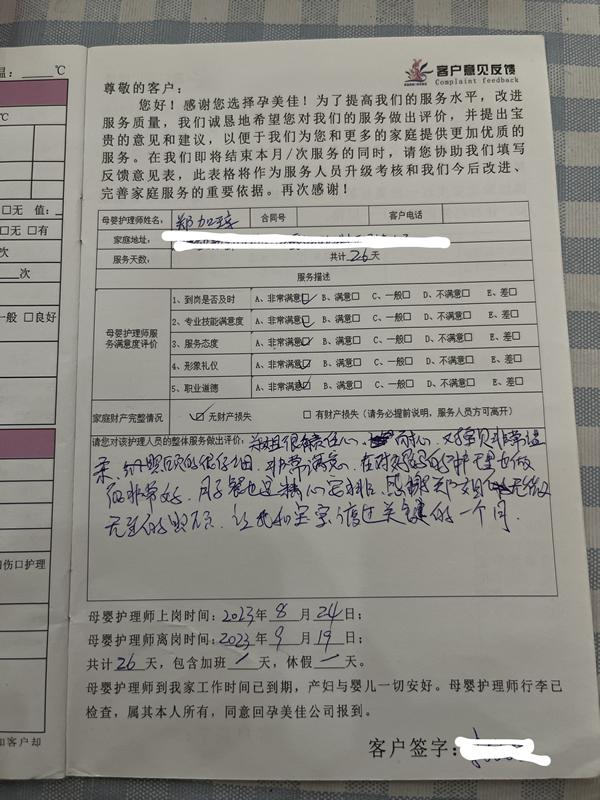 温：____℃
℃
□无 值：
□无 □有
次
次
一般 □良好
伤口护理
和客户却
客户意见反馈
Complaint feedback
尊敬的客户：
您好！感谢您选择孕美佳！为了提高我们的服务水平，改进
服务质量，我们诚恳地希望您对我们的服务做出评价，并提出宝
贵的意见和建议，以便于我们为您和更多的家庭提供更加优质的
服务。在我们即将结束本月/次服务的同时，请您协助我们填写
反馈意见表，此表格将作为服务人员升级考核和我们今后改进、
完善家庭服务的重要依据。再次感谢！
母婴护理师姓名： 郑加 合同号 客户电话
家庭地址：
服务天数： 共计26天
服务描述
母婴护理师服
务满意度评价
1、到岗是否及时 A、非常满意☑ B、满意□ C、一般□ D、不满意□ E、差□
2、专业技能满意度 A、非常满意☑ B、满意□ C、一般□ D、不满意□ E、差□
3、服务态度 A、非常满意☑ B、满意□ C、一般□ D、不满意□ E、差□
4、形象礼仪 A、非常满意☑ B、满意□ C、一般□ D、不满意□ E、差□
5、职业道德 A、非常满意☑ B、满意□ C、一般□ D、不满意□ E、差□
家庭财产完整情况 ☑无财产损失 □有财产损失（请务必提前说明，服务人员方可离开）
请您对该护理人员的整体服务做出评价：郑姐很有责任心、耐心，对宝贝非常温
柔，照顾的很仔细，非常满意，在对妈妈的护理也做
的非常好，月子餐也是精心安排，感谢郑姐无微
不至的照顾，让我和宝宝度过关键的一个月.
母婴护理师上岗时间：2023年 8 月 24 日；
母婴护理师离岗时间：2023年 9 月 19 日；
共计26天，包含加班 / 天，休假 / 天。
母婴护理师到我家工作时间已到期，产妇与婴儿一切安好。母婴护理师行李已
检查，属其本人所有，同意回孕美佳公司报到。
客户签字：